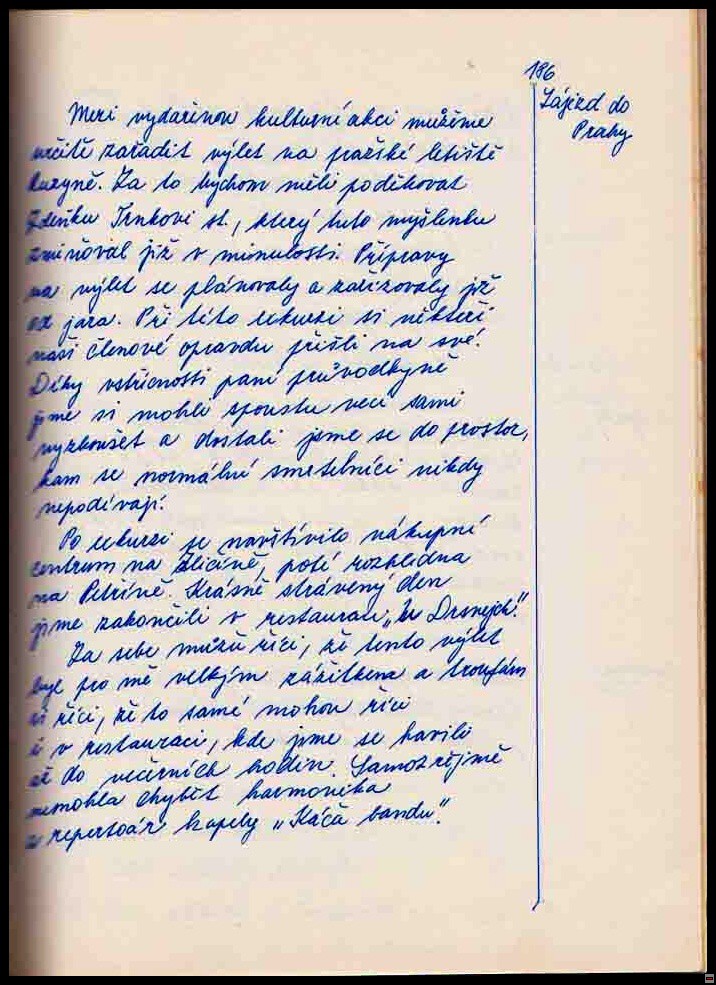 186
Zájezd do
Prahy
Mezi vydařenou kulturní akci můžeme
určitě zařadit výlet na pražské letiště
Ruzyně. Za to bychom měli poděkovat
Zdeňku Trnkovi st., který tuto myšlenku
zmiňoval již v minulosti. Přípravy
na výlet se plánovaly a zařizovaly již
od jara. Při této exkurzi si někteří
naši členové opravdu přišli na své!
Díky vstřícnosti paní průvodkyně
jsme si mohli spoustu věcí sami
vyzkoušet a dostali jsme se do prostor,
kam se normální smrtelníci nikdy
nepodívají.
Po exkurzi se navštívilo nákupní
centrum na Zličíně, poté rozhledna
na Petříně. Krásně strávený den
jsme zakončili v restauraci „U Drsnejch".
Za sebe můžu říci, že tento výlet
byl pro mě velkým zážitkem a troufám
si říci, že to samé mohou říci
i v restauraci, kde jsme se bavili
až do večerních hodin. Samozřejmě
nemohla chybět harmonika
a repertoár kapely „Káča bandu".